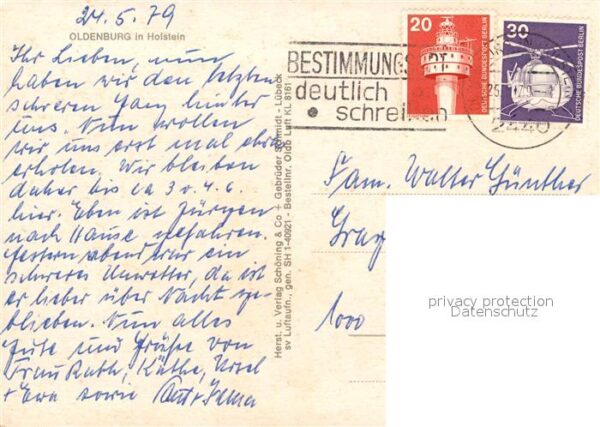 24.5.79
OLDENBURG in Holstein
Ihr Lieben, nun
haben wir den letzten
schweren Gang hinter
uns. Nun wollen
wir uns erst mal
erholen. Wir bleiben
daher bis ca 3 o. 4. 6.
hier. Eben ist Jürgen
nach Hause gefahren.
Gestern abend war ein
schweres Unwetter, da ist
er lieber über Nacht ge-
blieben. Nun alles
Gute und Grüße von
Frau Rath, Käthe, Ursel
+ Ewa sowie Kurt + Irma
Herst. u. Verlag Schöning & Co + Gebrüder Schmidt - Lübeck
sv Luftaufn., gen. SH 1-40921 - Bestellnr. Oldb Luft KL 8161
BESTIMMUNGSORT
deutlich
schreiben
20
DEUTSCHE BUNDESPOST BERLIN
30
DEUTSCHE BUNDESPOST BERLIN
2440
Fam. Walter Günther
1000
privacy protection
Datenschutz